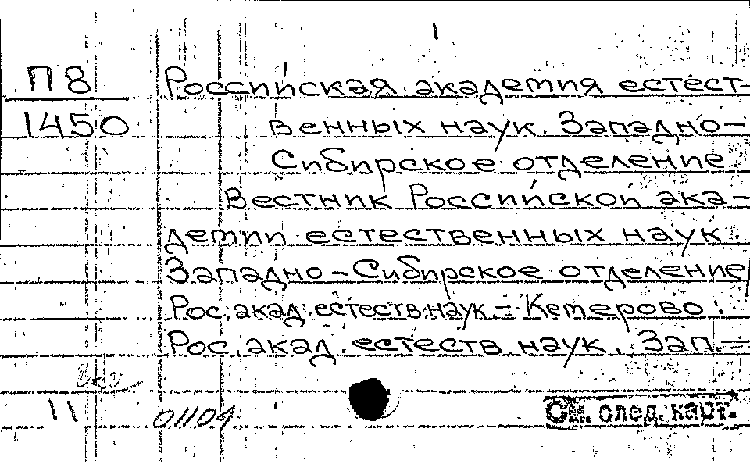 П8
1450
Российская академия естест-
венных наук. Западно-
Сибирское отделение.
Вестник Российской ака-
демии естественных наук.
Западно-Сибирское отделение/
Рос. акад. естеств. наук. – Кемерово:
Рос. акад. естеств. наук. Зап.–
11
01104
См. след. карт.